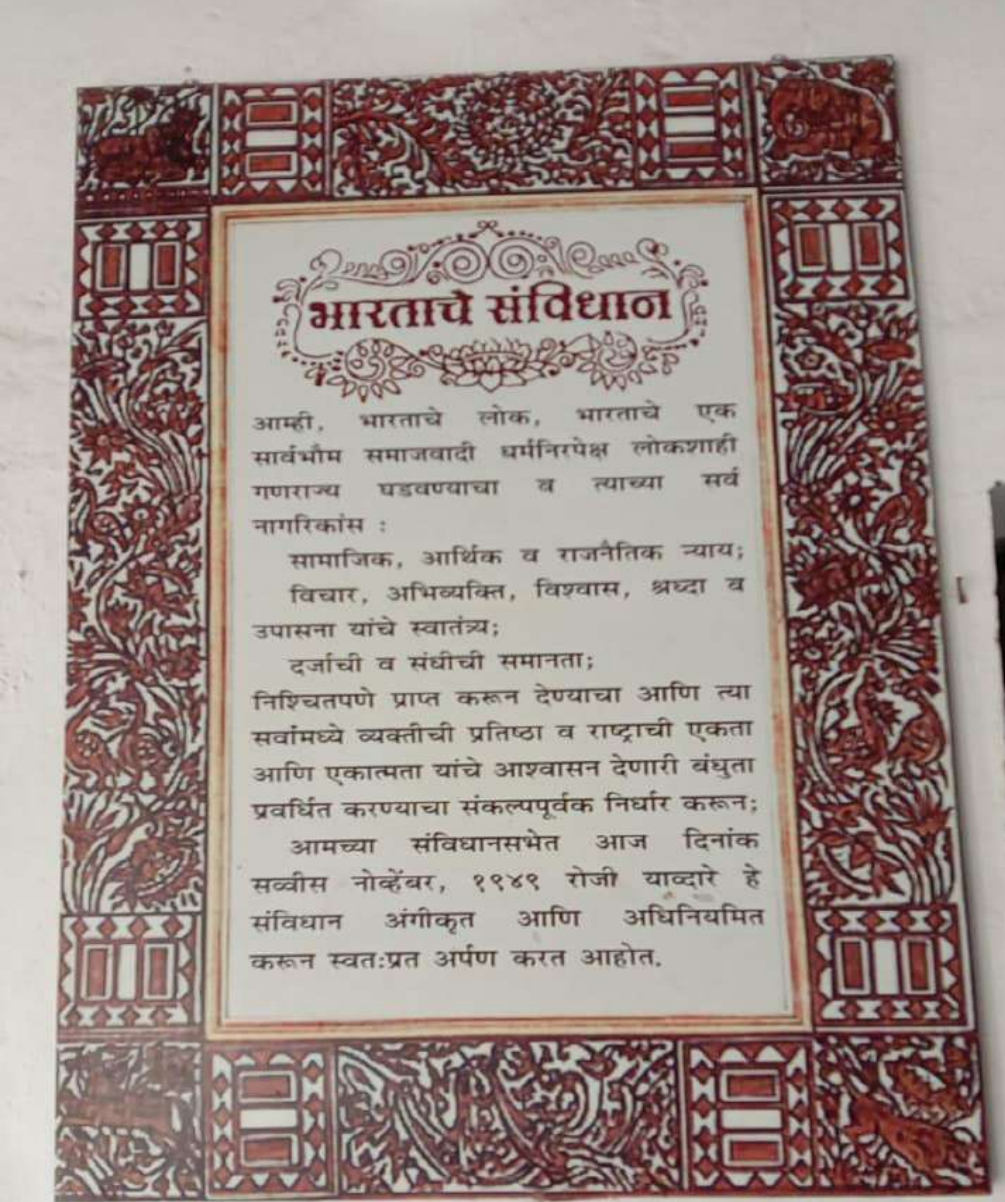 भारताचे संविधान
आम्ही, भारताचे लोक, भारताचे एक
सार्वभौम समाजवादी धर्मनिरपेक्ष लोकशाही
गणराज्य घडवण्याचा व त्याच्या सर्व
नागरिकांस :
सामाजिक, आर्थिक व राजनैतिक न्याय;
विचार, अभिव्यक्ति, विश्वास, श्रध्दा व
उपासना यांचे स्वातंत्र्य;
दर्जाची व संधीची समानता;
निश्चितपणे प्राप्त करून देण्याचा आणि त्या
सर्वांमध्ये व्यक्तीची प्रतिष्ठा व राष्ट्राची एकता
आणि एकात्मता यांचे आश्वासन देणारी बंधुता
प्रवर्धित करण्याचा संकल्पपूर्वक निर्धार करून;
आमच्या संविधानसभेत आज दिनांक
सव्वीस नोव्हेंबर, १९४९ रोजी याव्दारे हे
संविधान अंगीकृत आणि अधिनियमित
करून स्वतःप्रत अर्पण करत आहोत.